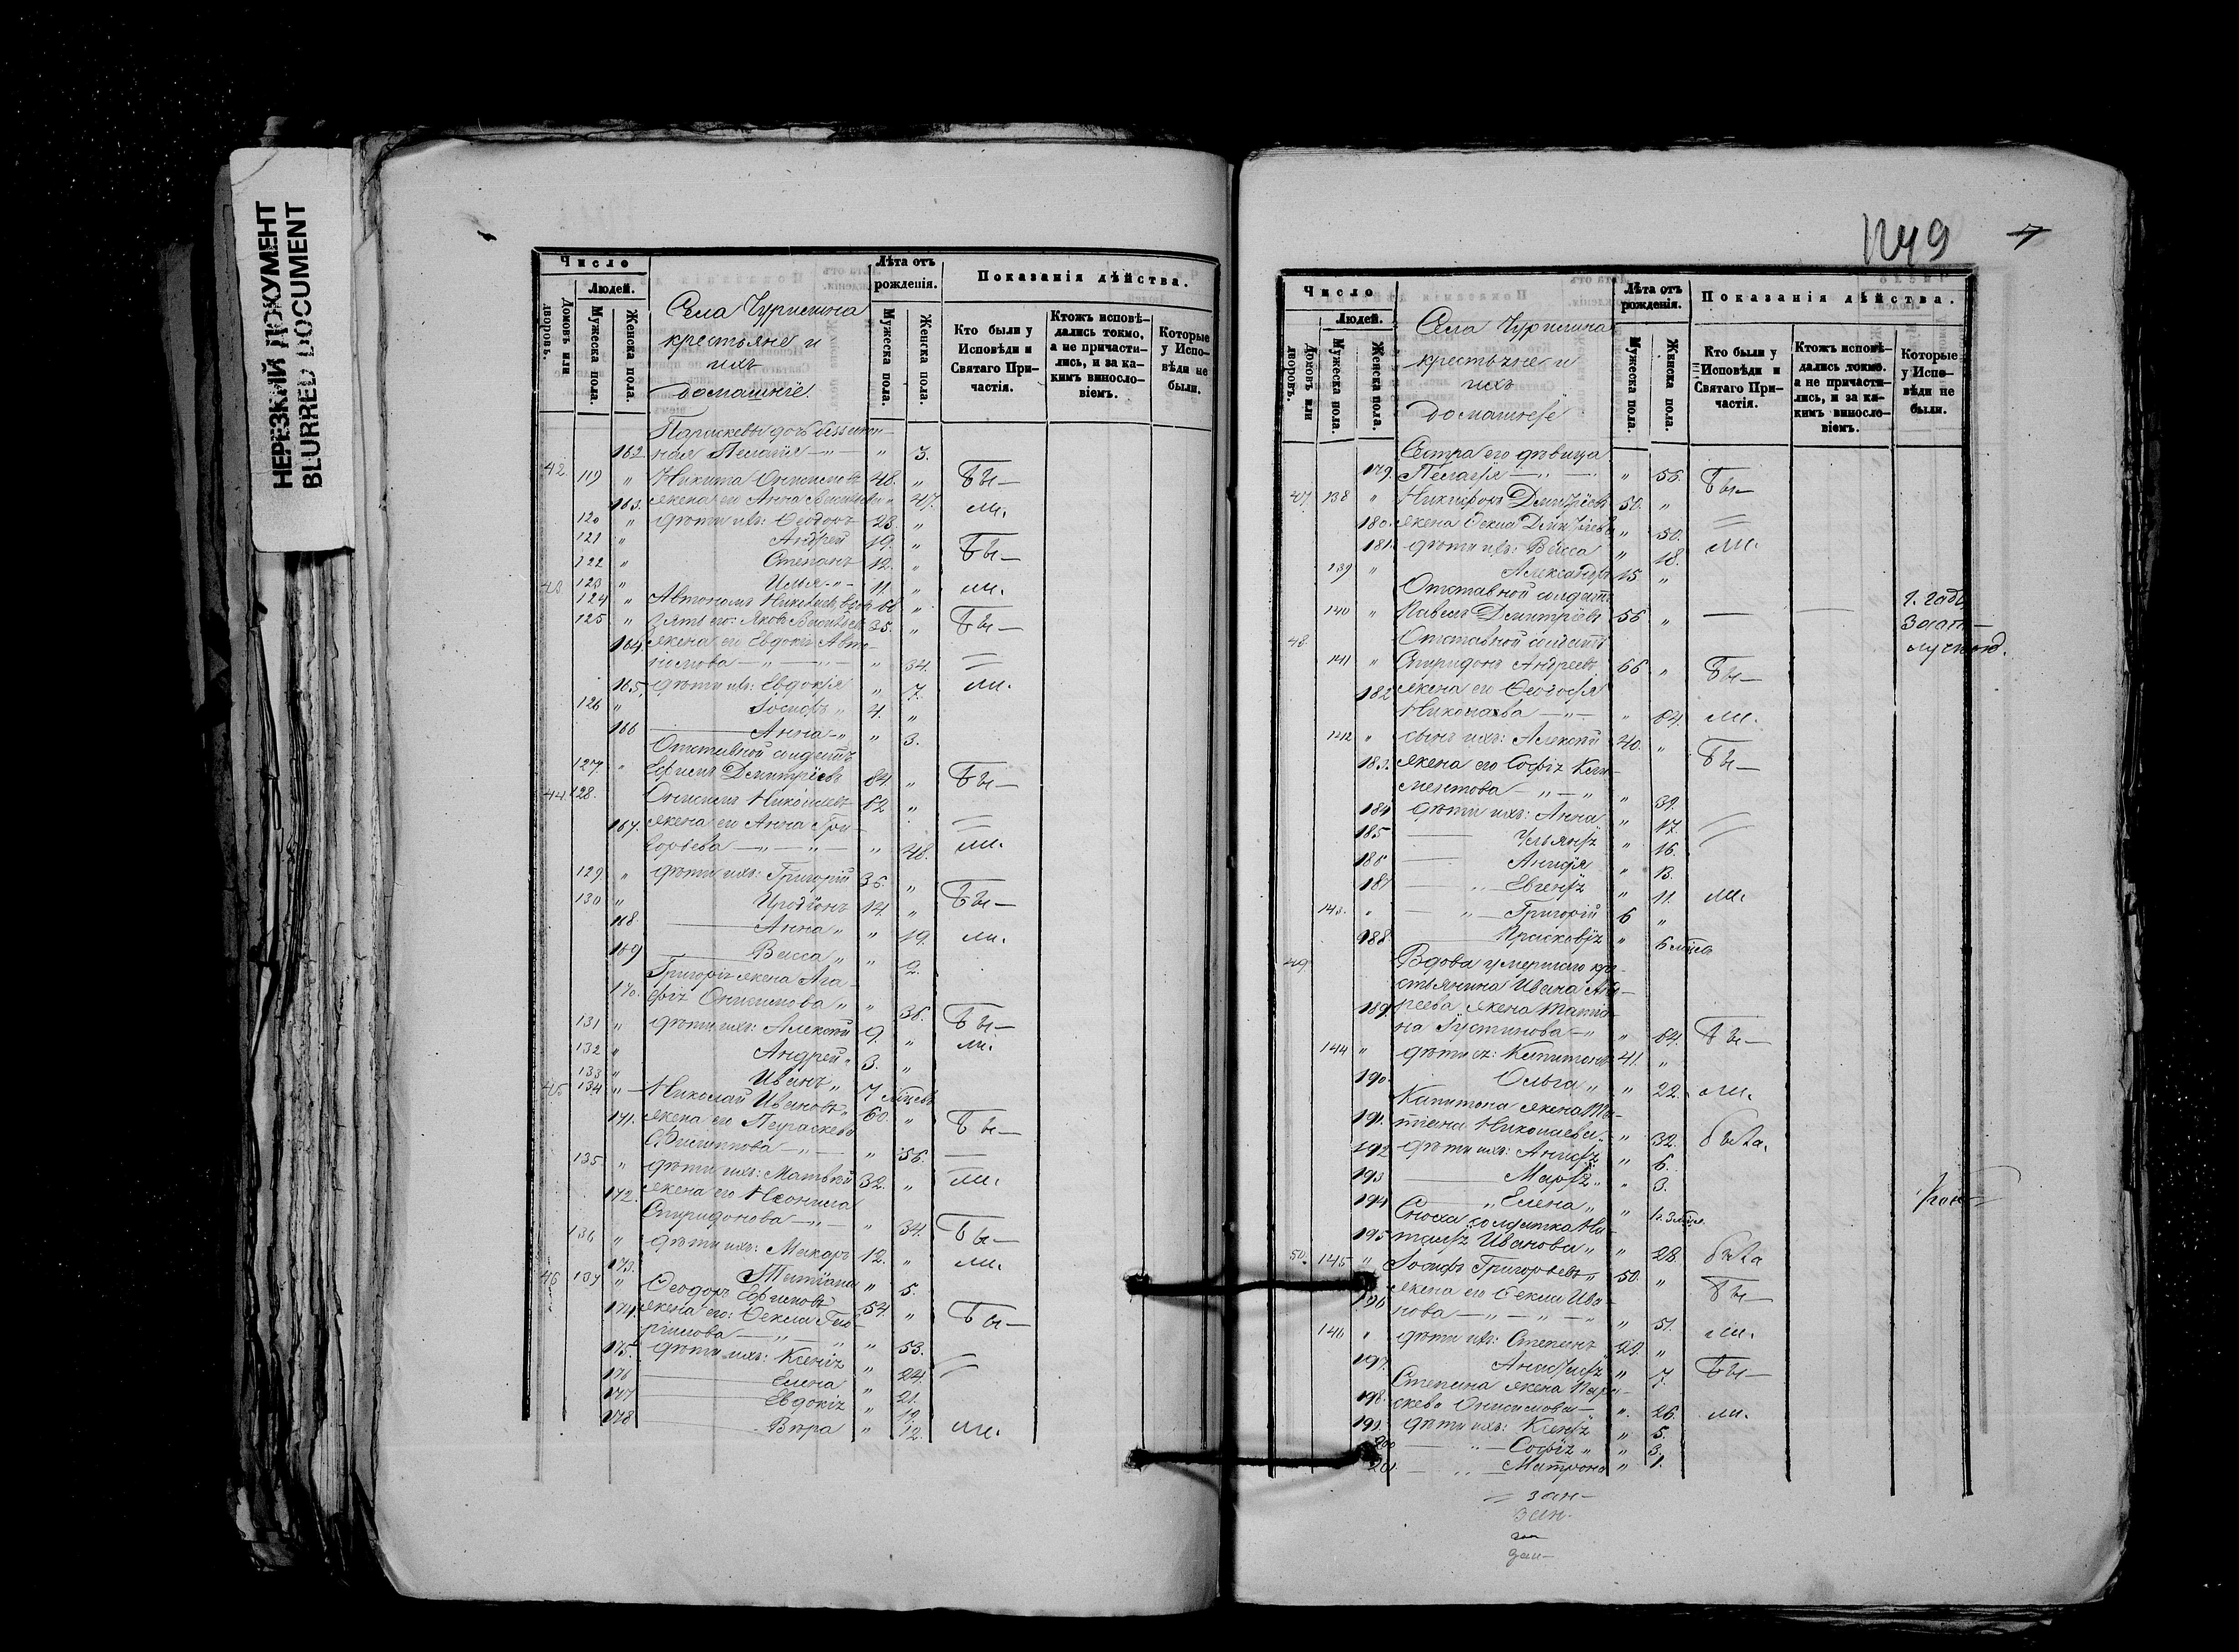 НЕРЕЗКИЙ ДОКУМЕНТ
BLURRED DOCUMENT
Число
Людей.
Домовъ или дворовъ.
Мужеска пола.
Женска пола.
Села
крестьяне и
ихъ
домашніе.
Лѣта отъ рожденія.
Мужеска пола.
Женска пола.
Показанія дѣйства.
Кто были у Исповѣди и Святаго Причастія.
Ктожъ исповѣдались токмо, а не причастились, и за какимъ винословіемъ.
Которые у Исповѣди не были.
Параскевы дочь
162 Пелагія — " — " 3.
42 119 " Никита Онисимовъ 48. " Бы—
163. жена его Анна " 47. ли.
120 " дѣти ихъ: Ѳеодоръ 23. "
121 " Андрей 19. " Бы—
122 " Степанъ 12. "
123 " Илья " 11. " ли.
43 124 " Автономъ "
125 " Зять его: Яковъ 35. " Бы—
164. жена его Евдокія Авто-
номова — " — " — " 34.
165. дѣти ихъ: Евдокія " 7. ли.
126 " Іосифъ " 4. "
166 Анна " " 3.
Отставной солдатъ
127. " Ефимъ Дмитріевъ 84. " Бы—
44 128. Онисимъ Николаевъ 62 "
167. жена его Анна Гри-
горьева — " — " — " 48. ли.
129. " дѣти ихъ: Григорій 36. "
130 " Иродіонъ 14. " Бы—
168. Анна " " 19. ли.
169 Васса " " 2.
Григорія жена Ага-
170. фія Онисимова " " 36. Бы—
131 " дѣти ихъ: Алексѣй 9. " ли.
132 " Андрей " 3. "
133 " Иванъ " 7 мѣцевъ
45 134 " Николай Ивановъ " 60. "
171. жена его Параскева Бы—
Филиппова — " — " 56. —
135. " дѣти ихъ: Матвѣй 32. " ли.
172. жена его Неонила
Спиридонова — " — " 34. Бы—
136 " дѣти ихъ: Макаръ 12. " ли.
173. Татіана " 5.
46 137 " Ѳеодоръ Ефимовъ 54. "
174. жена его: Ѳекла Бы—
— " — " " 53.
175. дѣти ихъ: Ксенія " 24.
176 Елена " 21.
177 Евдокія " 19.
178 Вѣра " 12. ли.
1249 7
Число
Людей.
Домовъ или дворовъ.
Мужеска пола.
Женска пола.
Села
крестьяне и
ихъ
домашніе
Лѣта отъ рожденія.
Мужеска пола.
Женска пола.
Показанія дѣйства.
Кто были у Исповѣди и Святаго Причастія.
Ктожъ исповѣдались токмо. а не причастились, и за какимъ винословіемъ.
Которые у Исповѣди не были.
Сестра его дѣвица
179. Пелагія — " — " 56. Бы—
47 138 " Никифоръ Дмитріевъ 50. "
180. жена Ѳекла " 50.
181. дѣти ихъ: Васса " 18. ли.
139 " Александръ 15. "
Отставной солдатъ
140 " Павелъ Дмитріевъ 56 " — —
48. Отставной солдатъ
141 " Спиридонъ Андреевъ 66 " Бы—
182 жена его Ѳеодосія
Николаева — " — " 64. ли.
142 " сынъ ихъ: Алексѣй 40. " Бы—
183. жена его Софія Кли-
ментова — " — " " 39.
184 дѣти ихъ: Анна " 17.
185 — Ульянія " 16.
186 — " 13.
187 — " Евгенія " 11. ли.
143. " — " — Григорій 6 "
188. Прасковія " 6 мѣцевъ
49 Вдова умершаго кре-
стьянина Ивана Анд-
189. реева жена Татіа-
на Густинова — " " 64. Бы—
144 " дѣти ея: Капитонъ 41. "
190. Ольга " " 22. ли.
Капитона жена Та-
191. тіана Николаева " " 32. была.
192 дѣти ихъ: " 6.
193 Марія " " 3.
194 " Елена " "
Сноха солдатка На-
195 талія Иванова " " 28. была
50. 145 " Іосифъ Григорьевъ " 50. "
196 жена его Ѳекла Ива- Бы—
нова — " — " — " " 51.
146 " дѣти ихъ: Степанъ 29. " ли.
197. Анастасія " 7. Бы—
Степана жена Пара-
198. скева Онисимова — " 26. ли.
199. дѣти ихъ: Ксенія " 5.
200 — " — Софія " " 3.
201. — " — Матрона " 1.